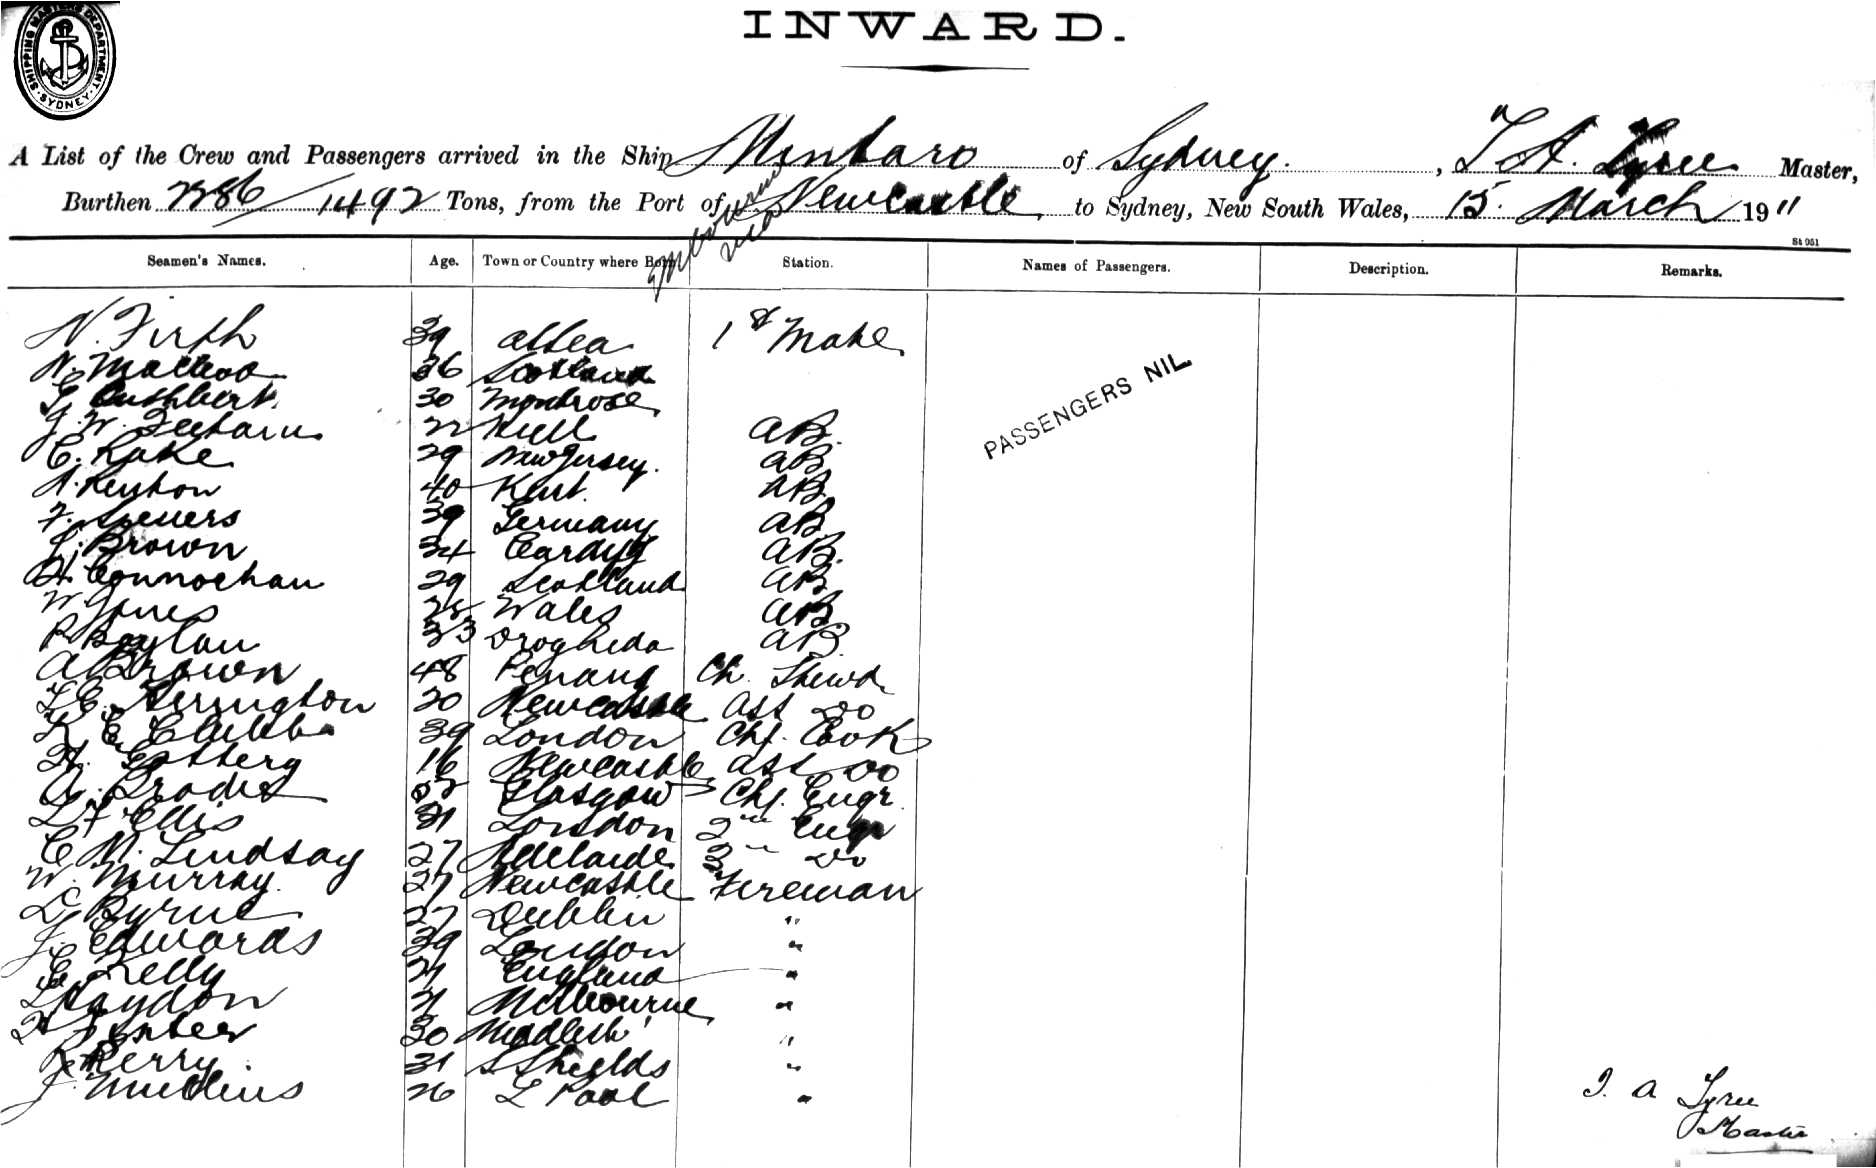 SHIPPING MASTERS DEPARTMENT SYDNEY
INWARD.
A List of the Crew and Passengers arrived in the Ship Mintaro of Sydney, T A. Tyree Master,
Burthen 2286/1492 Tons, from the Port of Melbourne via Newcastle to Sydney, New South Wales, 15 March 1911
St 951
Seamen's Names. Age. Town or Country where Born Station. Names of Passengers. Description. Remarks.
N. Firth 39 at Sea 1st Mate
N. McLeod 36 Scotland
Cuthbert 30 Montrose
J. W. 22 Hull AB.
C. Lake 29 New Jersey. AB
A. Kenton 40 Kent. AB
F. 39 Germany AB
J. Brown 34 Cardiff AB.
H. Connochan 29 Scotland AB
W Jones 28 Wales AB
P. Boylan 33 Drogheda AB
A Brown 48 Penang Ch. Stewd
Herrington 20 Newcastle Ass Do
E. Clubb 39 London Chf. Cook
H. 16 Newcastle Ass Do
A. Brodie 52 Glasgow Chf. Engr
Ellis 31 London 2nd Engr
C. M. Lindsay 27 Adelaide 3rd Do
W. Murray. 27 Newcastle Fireman
Byrne 27 Dublin "
J. Edwards 39 London "
Kelly 21 England "
Haydon 21 Melbourne "
30 Middlesb' "
Kerry 31 S Shields "
J. Mullins 26 L Pool "
PASSENGERS NIL
T. A Tyree
Master